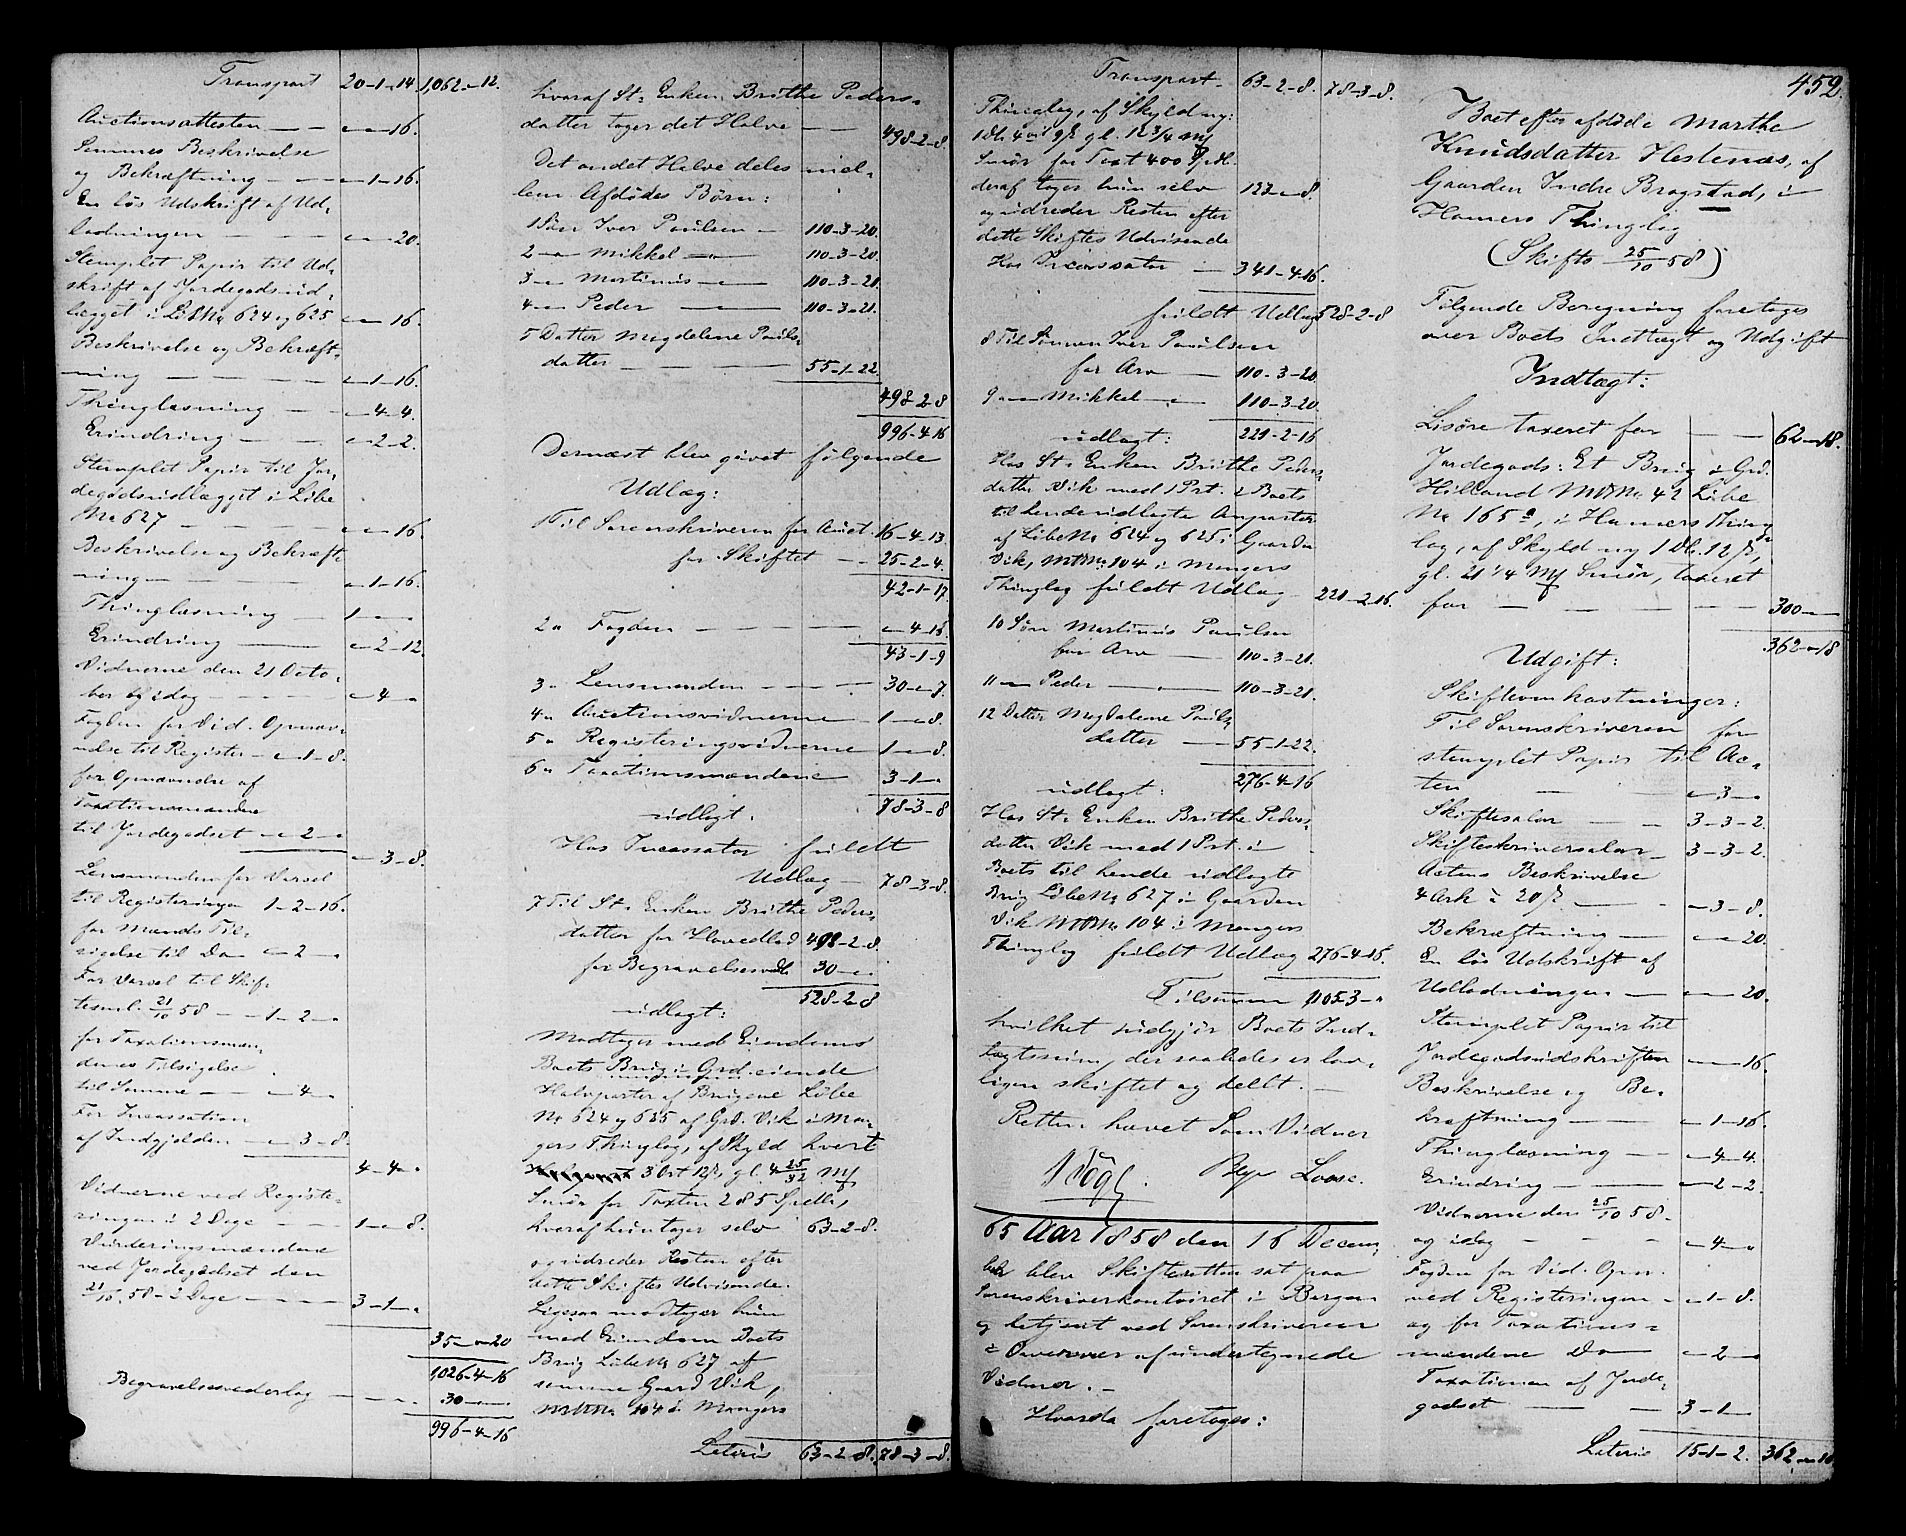 Transport 20-1-14. 1,062-"-12.
Auctionsattesten — — "-"-16.
Sammes Beskrivelse
og Bekræftning — — "-1-16.
En løs Udskrift af Ud-
lodningen — — "-"-20.
Stemplet Papir til Ud-
skrift af Jordegodsud-
lægget i LøbeNo 624 og 625 "-"-16.
Beskrivelse og Bekræft-
ning — — — "-1-16.
Thinglæsning — — "-4-4.
Erindring — — "-2-2.
Stemplet Papir til Jor-
degodsudlægget i Løbe
No 627 — — — "-"-16.
Beskrivelse og Bekræft-
ning — — — "-1-16.
Thinglæsning — 1-"-"
Erindring — — "-2-12.
Vidnerne den 21 Octo-
ber og idag — — — "-4-"
Fogden for Vid. Opnæv-
nelse til Register — "-1-8.
for Opnævnelse af
Taxationsmændene
til Jordegodset — "-2-"
"-3-8.
Lensmanden for Varsel
til Registeringen 1-2-16.
for Mænds Til-
sigelse til Do "-2-"
For Varsel til Skif-
tesml. 21/10 58 — 1-2-"
for Taxationsmæn-
denes Tilsigelse
til Samme — "-4-"
For Incassation
af Indgjelden — "-3-8.
4-4-"
Vidnerne ved Registe-
ringen i 2 Dage — 1-"-8.
Vurderingsmændene
ved Jordegodset den
21/10 58 - 2 Dage — 3-1-"
35-"-20
1,026-4-16
Begravelsesvederlag — 30-"-"
996-4-16
hvoraf St: Enken Brithe Peders-
datter tager det Halve — 498-2-8.
Det andet Halve deles mel-
lem Afdødes Børn:
1 Søn Iver Poulsen — 110-3-20.
2 — " — Mikkel — " — 110-3-20.
3 — " — Martinus — " — 110-3-21.
4 — " — Peder — " — 110-3-21.
5 Datter Magdelene Pouls-
datter — — — 55-1-22.
498-2-8
996-4-16
Dernæst blev givet følgende
Udlæg:
1 Til Sorenskriveren for Auct. 16-4-13
for Skiftet — 25-2-4.
42-1-17.
2 " Fogden — — — "-4-16.
43-1-9
3 " Lensmanden — — — 30-"-7.
4 " Auctionsvidnerne — 1-"-8.
5 " Registeringsvidnerne 1-"-8.
6 " Taxationsmændene 3-1-"
78-3-8
udlagt:
Hos Incassator fuldt
Udlæg — 78-3-8.
7 Til St: Enken Brithe Peders-
datter for Hovedlod 498-2-8.
for Begravelsesvedl. 30-"-"
528-2-8
udlagt:
Modtager med Eiendoms
Boets Brug i Grd. eiende
Halvparter af Brugene Løbe
No 624 og 625 af Grd. Vik i Man-
gers Thinglag, af Skyld hvert
3 Ort 12 s, gl. 4 25/32 Mf
Smør for Taxten 285 Spdlr,
hveraf hun tager selv 63-2-8.
og udreder Resten efter
dette Skiftes Udvisende.
Ligesaa modtager hun
med Eiendom Boets
Brug LøbeNo 627 af
samme Gaard Vik,
MtrNo 104 i Mangers
Lateris 63-2-8. 78-3-8.
Transport — 63-2-8. 78-3-8.
Thinglag, af Skyld ny:
1 Dlr 4 ort 9 s gl. 12 3/4 Mf
Smør for Taxt 400 Spdlr.
deraf tager hun selv 123-"-8.
og udreder Resten efter
dette Skiftes Udvisende
Hos Incassator — 341-4-16.
fuldt Udlæg 528-2-8
8 Til Sønnen Iver Poulsen
for Arv — 110-3-20.
9 — " — Mikkel — " 110-3-20.
udlagt: 221-2-16
Hos St: Enken Brithe Peders-
datter Vik med 1 Prt. i Boets
til hende udlagte Anparter
af LøbeNo 624 og 625 i Gaarden
Vik, MtrNo 104 i Mangers
Thinglag fuldt Udlæg 221-2-16.
10 Søn Martinus Poulsen
for Arv — 110-3-21.
11 — " — Peder — " — 110-3-21.
12 Datter Magdelene Pouls-
datter — 55-1-22.
276-4-16
udlagt:
Hos St: Enken Brithe Peders-
datter Vik med 1 Prt. i
Boets til hende udlagte
Brug LøbeNo 627 i Gaarden
Vik MtrNo 104 i Mangers
Thinglag fuldt Udlæg 276-4-16.
Tilsammen 1105-3-"
hvilket udgjør Boets Ind-
tægtssum, der saaledes er lov-
ligen skiftet og deelt. —
Retten hævet Som Vidner
65 Aar 1858 den 16 Decem-
ber blev Skifteretten sat paa
Sorenskriverkontoiret i Bergen
og betjent ved Sorenskriveren
i Overvær af undertegnede
Vidner. —
Hvorda foretoges:
452.
Boet efter afdøde Marthe
Knudsdatter Hestenæs, af
Gaarden Indre Bragstad, i
Hamers Thinglag
(Skifte 25/10 58)
Følgende Beregning foretages
over Boets Indtægt og Udgift
Indtægt:
Løsøre taxeret for — — 62-"-18.
Jordegods: Et Brug i Grd.
Hilland MtrNo 42 Løbe
No 165 a, i Hamers Thing-
lag, af Skyld ny 1 Dlr. 12 s,
gl. 21 1/4 Mf Smør, taxeret
for — — — — 300-"-"
362-"-18
Udgift:
Skifteomkostninger:
Til Sorenskriveren for
stemplet Papir til Ac-
ten — — "-3-"
Skiftesalær — — 3-3-2.
Skifteskriversalær — 3-3-2.
Actens Beskrivelse
4 Ark à 20 s. — — "-3-8.
Bekræftning — "-"-20.
En løs Udskrift af
Udlodningen — "-"-20.
Stemplet Papir til
Jordegodsudskriften "-"-16.
Beskrivelse og Be-
kræftning — — "-1-16.
Thinglæsning — — "-4-4.
Erindring — — "-2-2.
Vidnerne den 25/10 58 -
og idag — — — "-4-"
Fogden for Vid. Opn.
ved Registeringen — "-1-8.
og for Taxations-
mændene Do — "-2-"
Taxationen af Jorde-
godset — — 3-1-"
Lateris 15-1-2. 362-"-18